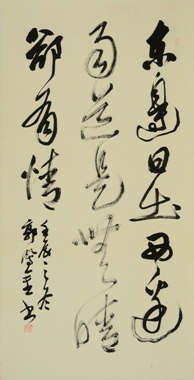 東邊日出西邊
雨道是無晴
卻有情
壬辰之冬
郭書